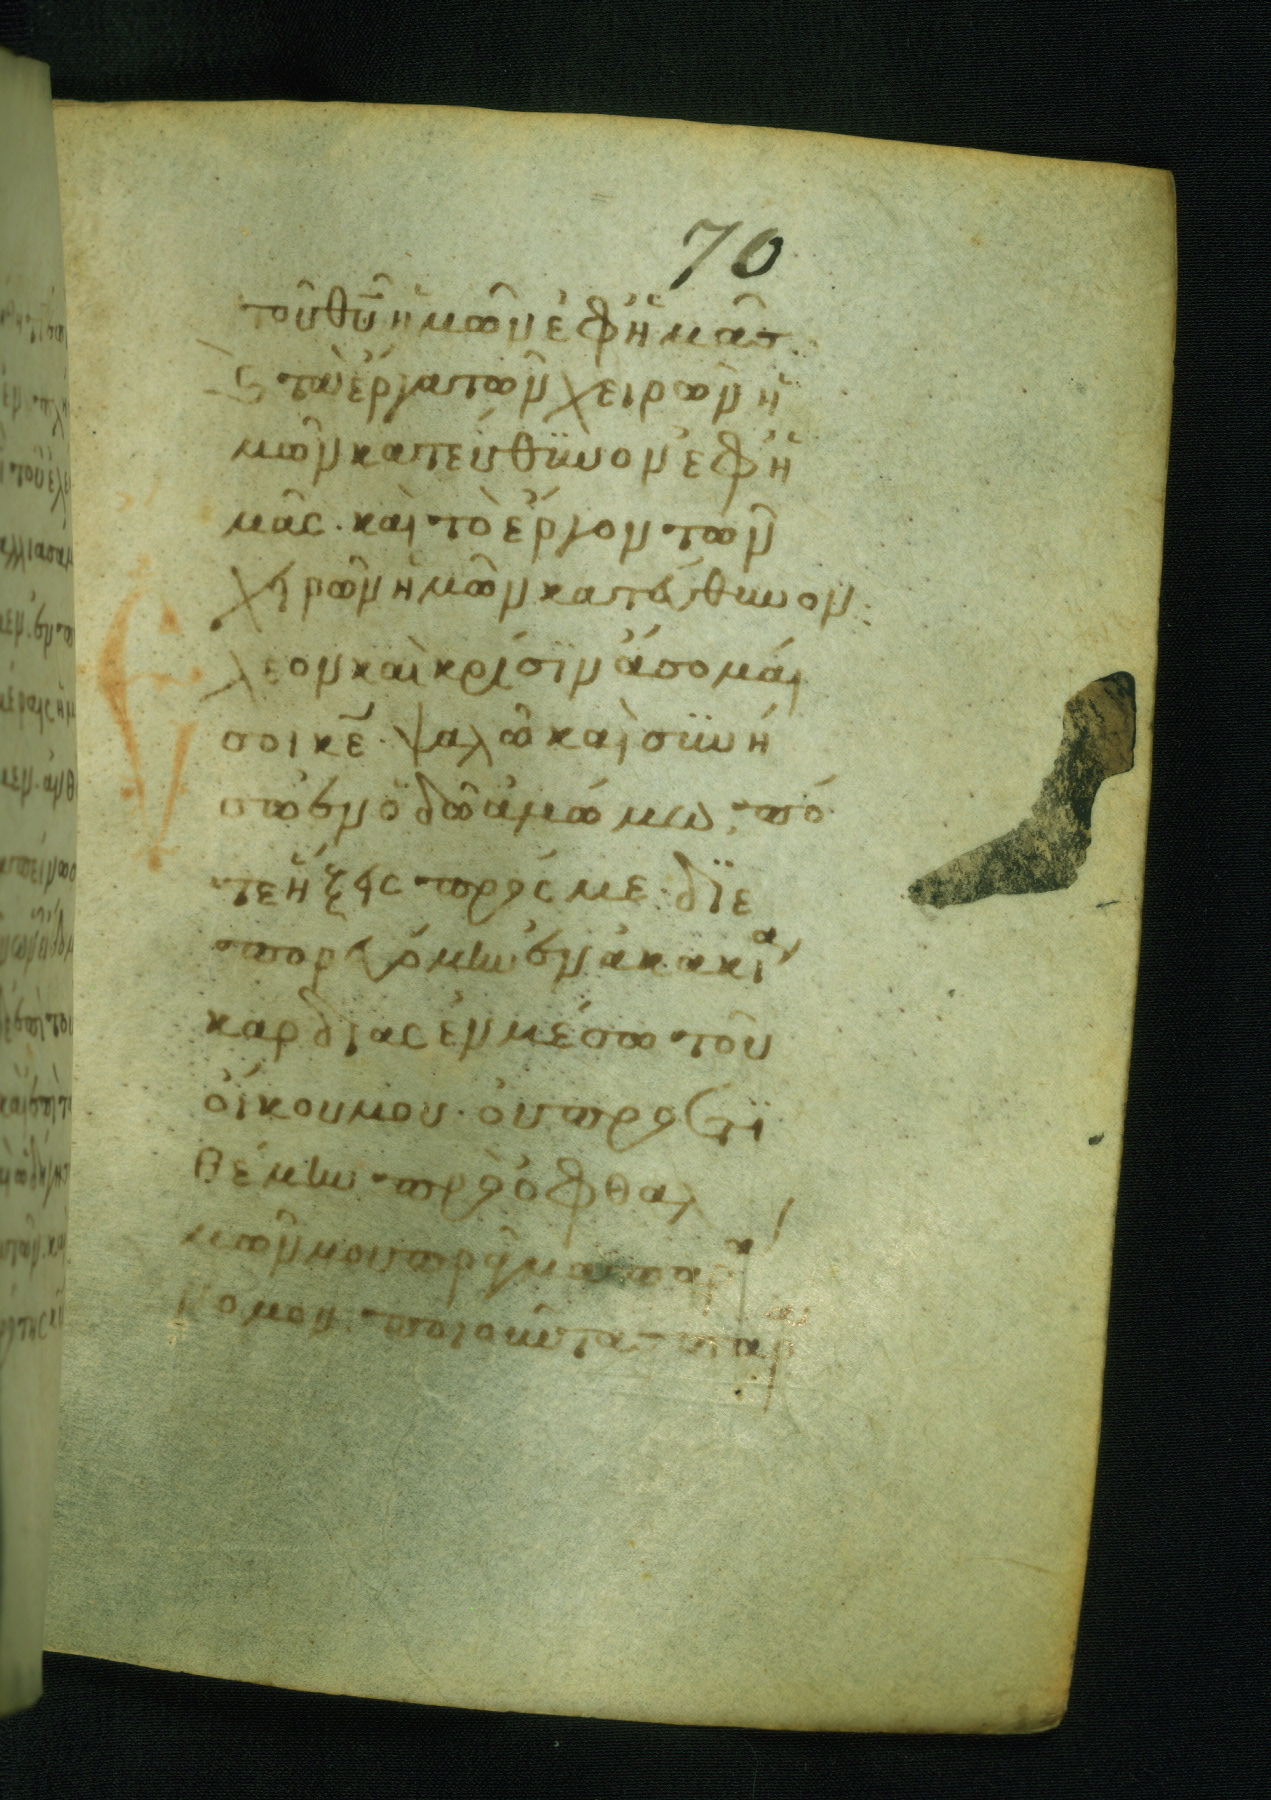 70
τοῦ θῦ ἡμῶν ἐφ ἡμᾶς.
ϛ τὰ ἔργα τῶν χειρῶν ἡ
μῶν κατεύθϋνον ἐφ ἡ
μᾶς. καὶ τὸ ἔργον τῶν
χειρῶν ἡμῶν κατεύθυνον:
Ἔλεον καὶ κρίσϊν ἄσομαί
σοι κε̄. ψαλῶ καὶ σϋνή
σω ἐν ὁδῶ ἀμώμω. πό
τε ἥξεις πρός με. δϊε
πορευόμην ἐν ἀκακία
καρδίας ἐν μέσω τοῦ
οἴκου μου. οὐ προετϊ
θέμην πρὸ ὀφθαλ
μῶν μου πρᾶγμα παρά
νομον. ποιοῦντας παρ